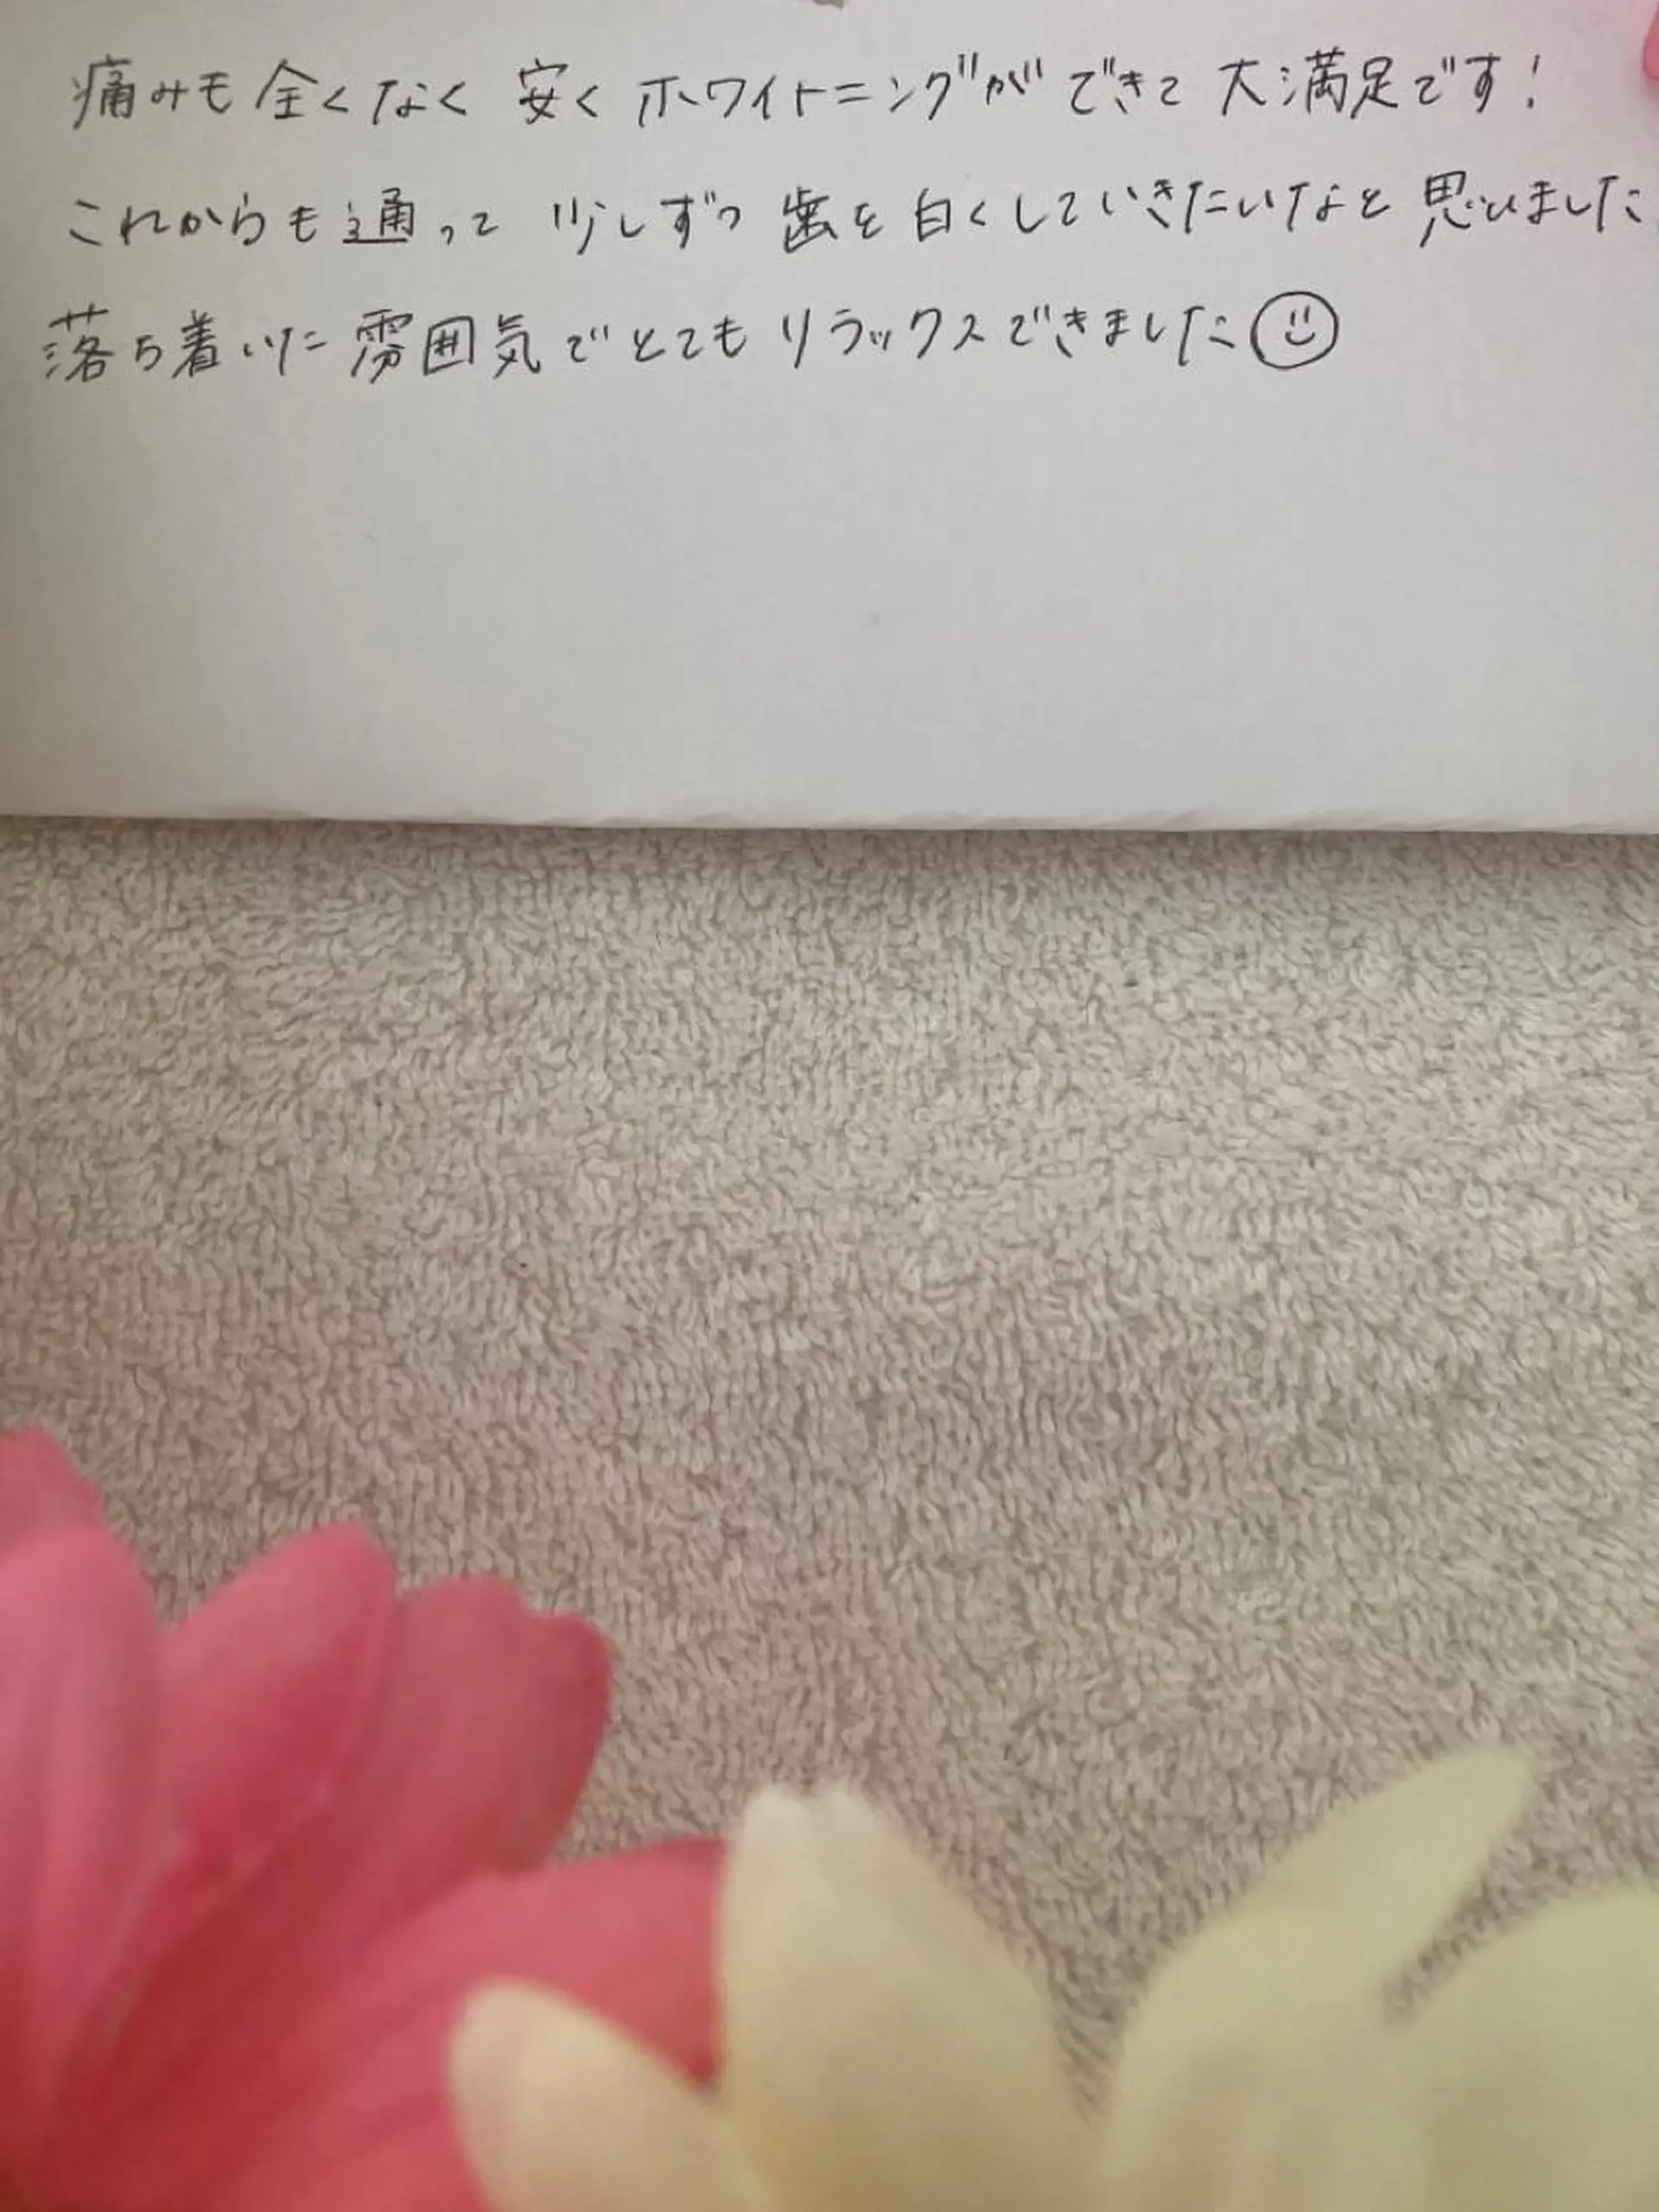 痛みも全くなく 安く ホワイトニングが できて 大満足です!
これからも通って 少しずつ 歯を 白くしていきたいなと 思いました
落ち着いた 雰囲気で とても リラックスできました☺